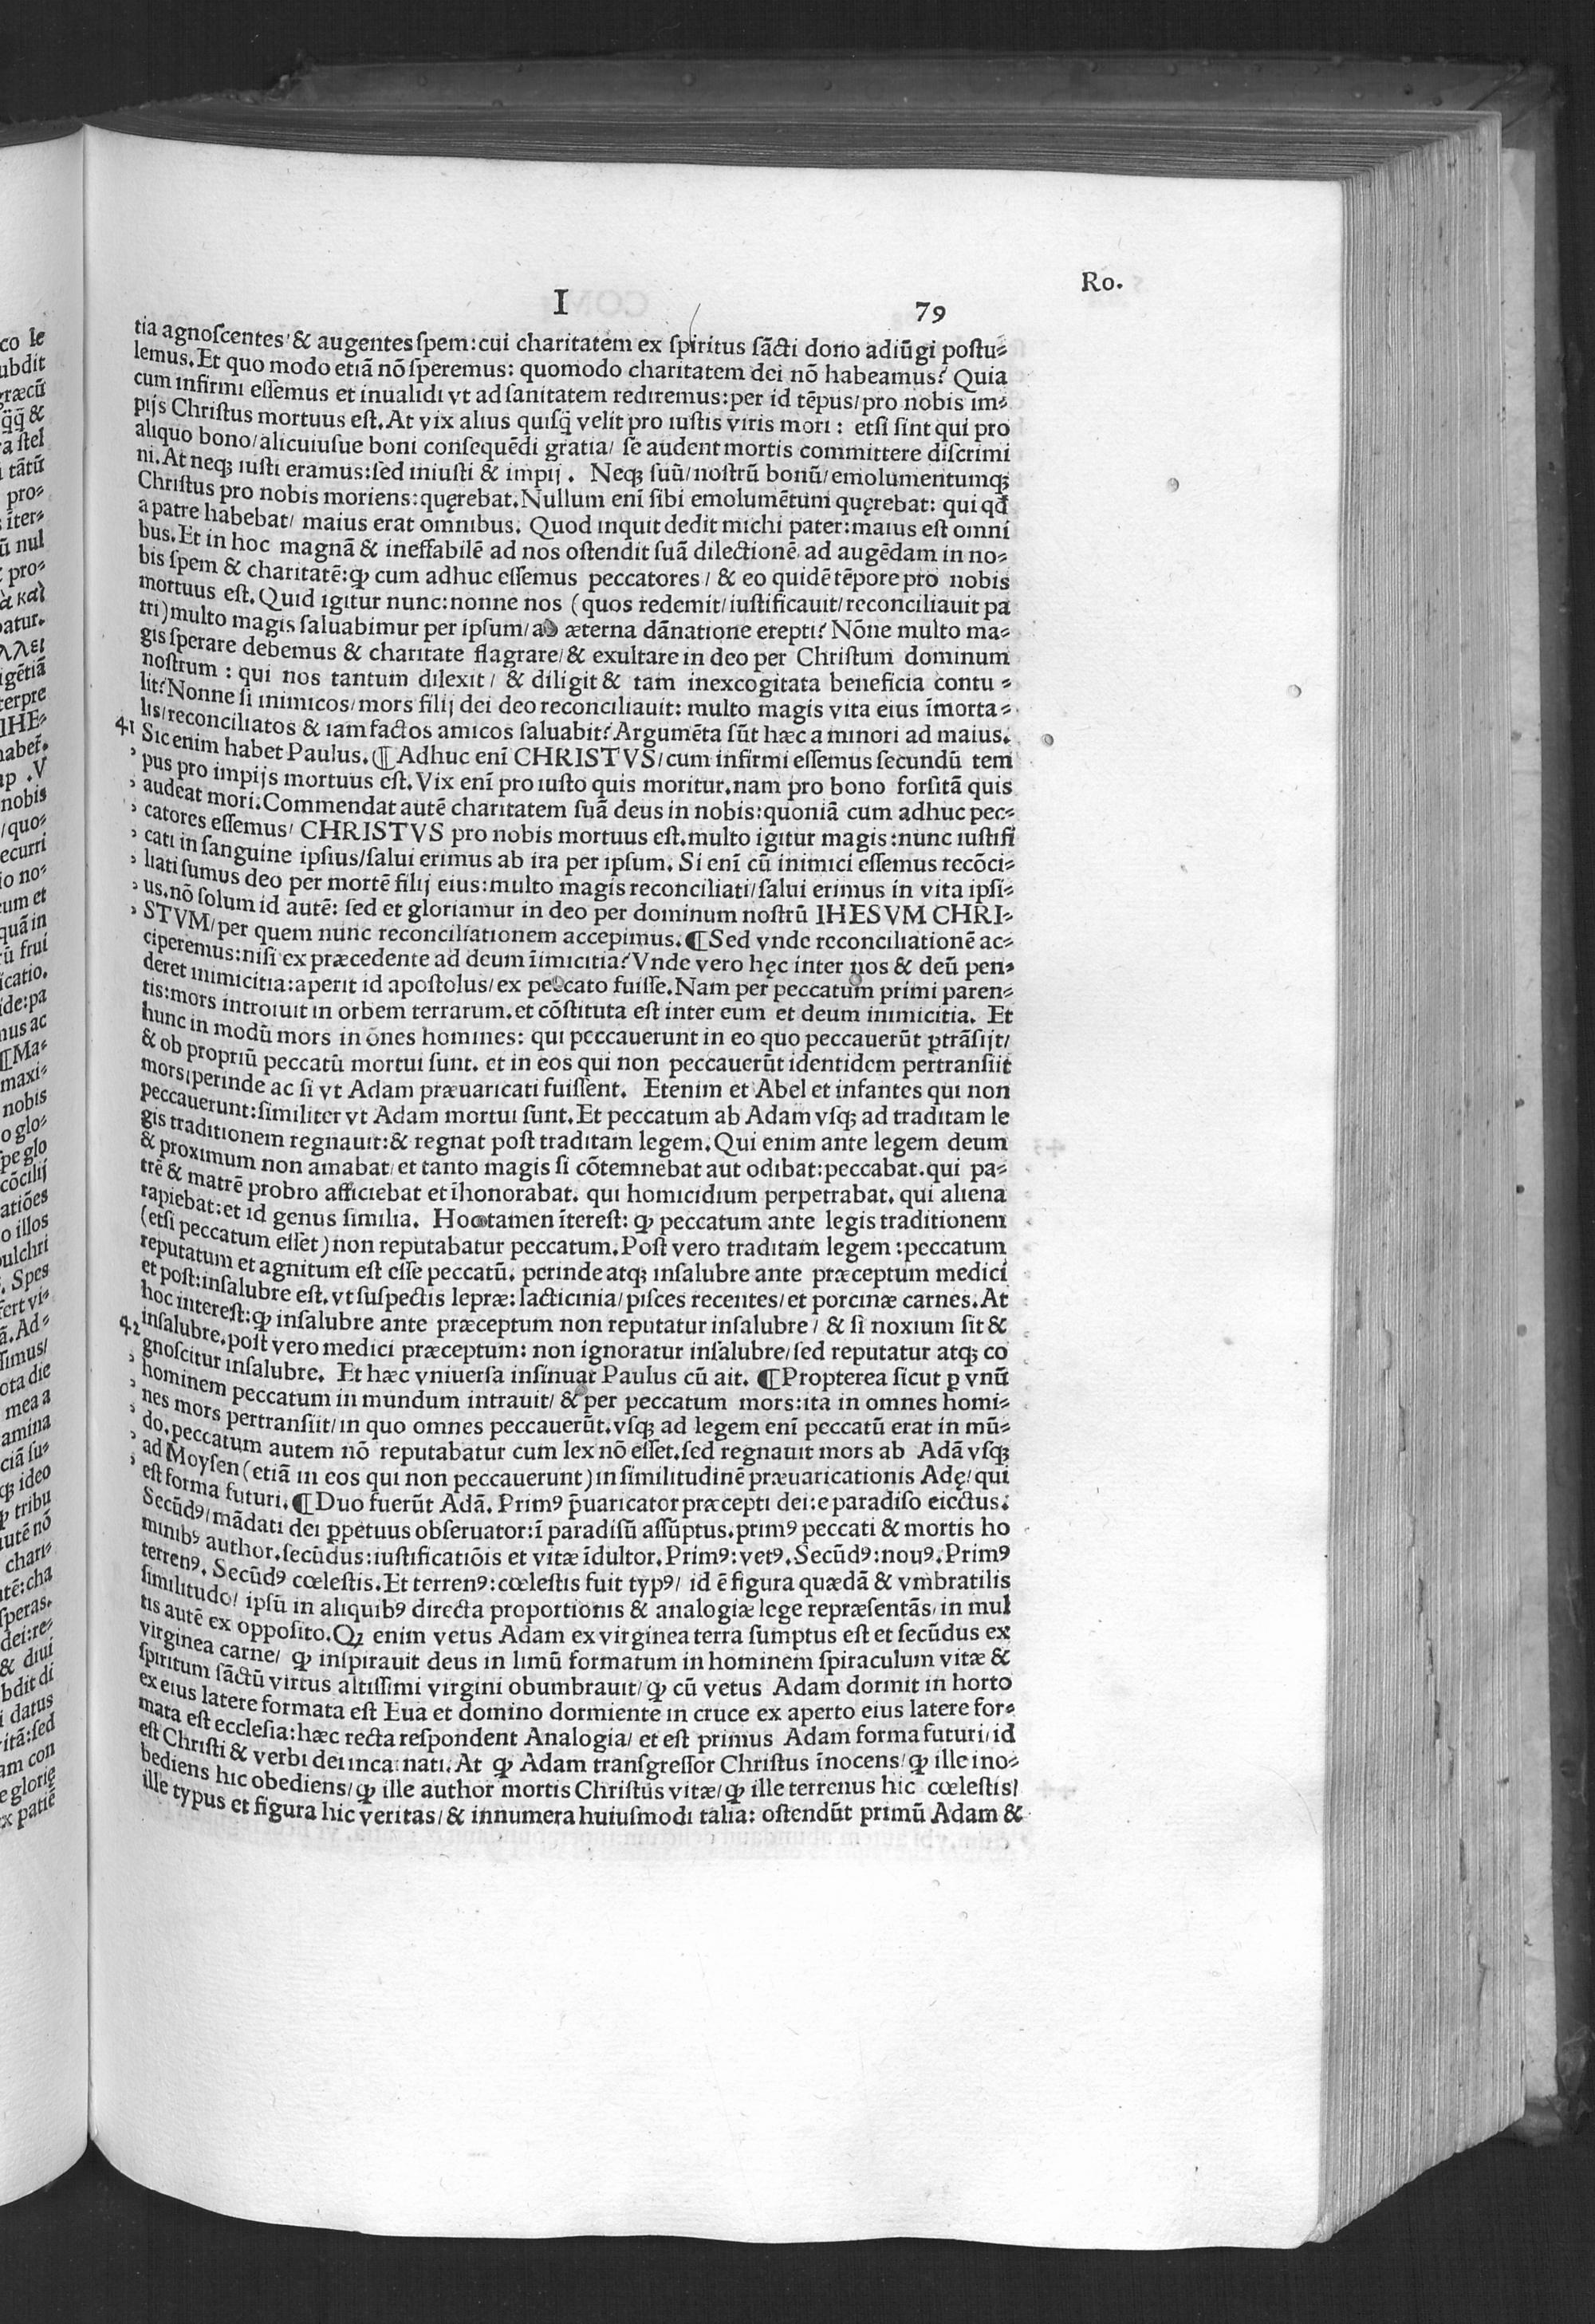 Ro.
I 79
tia agnoscentes/ & augentes spem: cui charitatem ex spiritus sãcti dono adiũgi postu⸗
lemus. Et quo modo etiã nõ speremus: quomodo charitatem dei nõ habeamus? Quia
cum infirmi essemus et inualidi vt ad sanitatem rediremus: per id tẽpus/ pro nobis im⸗
pijs Christus mortuus est. At vix alius quisq̃ velit pro iustis viris mori: etsi sint qui pro
aliquo bono/ alicuiusue boni consequẽdi gratia/ se audent mortis committere discrimi
ni. At neqꝫ iusti eramus: sed iniusti & impij. Neqꝫ suũ/ nostrũ bonũ/ emolumentumqꝫ
Christus pro nobis moriens: quęrebat. Nullum enĩ sibi emolumẽtum quęrebat: qui qđ
a patre habebat/ maius erat omnibus. Quod inquit dedit michi pater: maius est omni
bus. Et in hoc magnã & ineffabilẽ ad nos ostendit suã dilectionẽ ad augẽdam in no⸗
bis spem & charitatẽ: ꝙ cum adhuc essemus peccatores/ & eo quidẽ tẽpore pro nobis
mortuus est. Quid igitur nunc: nonne nos (quos redemit/ iustificauit/ reconciliauit pa
tri) multo magis saluabimur per ipsum/ ab æterna dãnatione erepti? Nõne multo ma⸗
gis sperare debemus & charitate flagrare/ & exultare in deo per Christum dominum
nostrum: qui nos tantum dilexit/ & diligit & tam inexcogitata beneficia contu⸗
lit? Nonne si inimicos/ mors filij dei deo reconciliauit: multo magis vita eius ĩmorta⸗
lis/ reconciliatos & iam factos amicos saluabit? Argumẽta sũt hæc a minori ad maius.
41 Sic enim habet Paulus. ¶Adhuc enĩ CHRISTVS/ cum infirmi essemus secundũ tem
, pus pro impijs mortuus est. Vix enĩ pro iusto quis moritur. nam pro bono forsitã quis
, audeat mori. Commendat autẽ charitatem suã deus in nobis: quoniã cum adhuc pec⸗
, catores essemus/ CHRISTVS pro nobis mortuus est. multo igitur magis: nunc iustifi
, cati in sanguine ipsius/ salui erimus ab ira per ipsum. Si enĩ cũ inimici essemus recõci⸗
, liati sumus deo per mortẽ filij eius: multo magis reconciliati/ salui erimus in vita ipsi⸗
, us. nõ solum id autẽ: sed et gloriamur in deo per dominum nostrũ IHESVM CHRI⸗
, STVM/ per quem nunc reconciliationem accepimus. ¶Sed vnde reconciliationẽ ac⸗
ciperemus: nisi ex præcedente ad deum ĩimicitia? Vnde vero hęc inter nos & deũ pen⸗
deret inimicitia: aperit id apostolus/ ex peccato fuisse. Nam per peccatum primi paren⸗
tis: mors introiuit in orbem terrarum. et cõstituta est inter eum et deum inimicitia. Et
hunc in modũ mors in õnes homines: qui peccauerunt in eo quo peccauerũt ꝑtrãsijt/
& ob propriũ peccatũ mortui sunt. et in eos qui non peccauerũt identidem pertransiit
mors/ perinde ac si vt Adam præuaricati fuissent. Etenim et Abel et infantes qui non
peccauerunt: similiter vt Adam mortui sunt. Et peccatum ab Adam vsqꝫ ad traditam le
gis traditionem regnauit: & regnat post traditam legem. Qui enim ante legem deum
& proximum non amabat/ et tanto magis si cõtemnebat aut odibat: peccabat. qui pa⸗
trẽ & matrẽ probro afficiebat et ĩhonorabat. qui homicidium perpetrabat. qui aliena
rapiebat: et id genus similia. Hoc tamen ĩterest: ꝙ peccatum ante legis traditionem
(etsi peccatum esset) non reputabatur peccatum. Post vero traditam legem: peccatum
reputatum et agnitum est esse peccatũ. perinde atqꝫ insalubre ante præceptum medici
et post: insalubre est. vt suspectis lepræ: lacticinia/ pisces recentes/ et porcinæ carnes. At
hoc interest: ꝙ insalubre ante præceptum non reputatur insalubre/ & si noxium sit &
42 insalubre. post vero medici præceptum: non ignoratur insalubre/ sed reputatur atqꝫ co
, gnoscitur insalubre. Et hæc vniuersa insinuat Paulus cũ ait. ¶Propterea sicut ꝑ vnũ
, hominem peccatum in mundum intrauit/ & per peccatum mors: ita in omnes homi⸗
, nes mors pertransiit/ in quo omnes peccauerũt. vsqꝫ ad legem enĩ peccatũ erat in mũ⸗
, do. peccatum autem nõ reputabatur cum lex nõ esset. sed regnauit mors ab Adã vsqꝫ
, ad Moysen (etiã in eos qui non peccauerunt) in similitudinẽ præuaricationis Adę/ qui
est forma futuri. ¶Duo fuerũt Adã. Primꝰ p̃uaricator præcepti dei: e paradiso eiectus.
Secũdꝰ/ mãdati dei ꝑpetuus obseruator: ĩ paradisũ assũptus. primꝰ peccati & mortis ho
minibꝰ author. secũdus: iustificatiõis et vitæ ĩdultor. Primꝰ: vetꝰ. Secũdꝰ: nouꝰ. Primꝰ
terrenꝰ. Secũdꝰ cœlestis. Et terrenꝰ: cœlestis fuit typꝰ/ id ẽ figura quædã & vmbratilis
similitudo/ ipsũ in aliquibꝰ directa proportionis & analogiæ lege repræsentãs/ in mul
tis autẽ ex opposito. Qꝫ enim vetus Adam ex virginea terra sumptus est et secũdus ex
virginea carne/ ꝙ inspirauit deus in limũ formatum in hominem spiraculum vitæ &
spiritum sãctũ virtus altissimi virgini obumbrauit/ ꝙ cũ vetus Adam dormit in horto
ex eius latere formata est Eua et domino dormiente in cruce ex aperto eius latere for⸗
mata est ecclesia: hæc recta respondent Analogia/ et est primus Adam forma futuri/ id
est Christi & verbi dei incarnati. At ꝙ Adam transgressor Christus ĩnocens/ ꝙ ille ino⸗
bediens hic obediens/ ꝙ ille author mortis Christus vitæ/ ꝙ ille terrenus hic cœlestis/
ille typus et figura hic veritas/ & innumera huiusmodi talia: ostendũt primũ Adam &